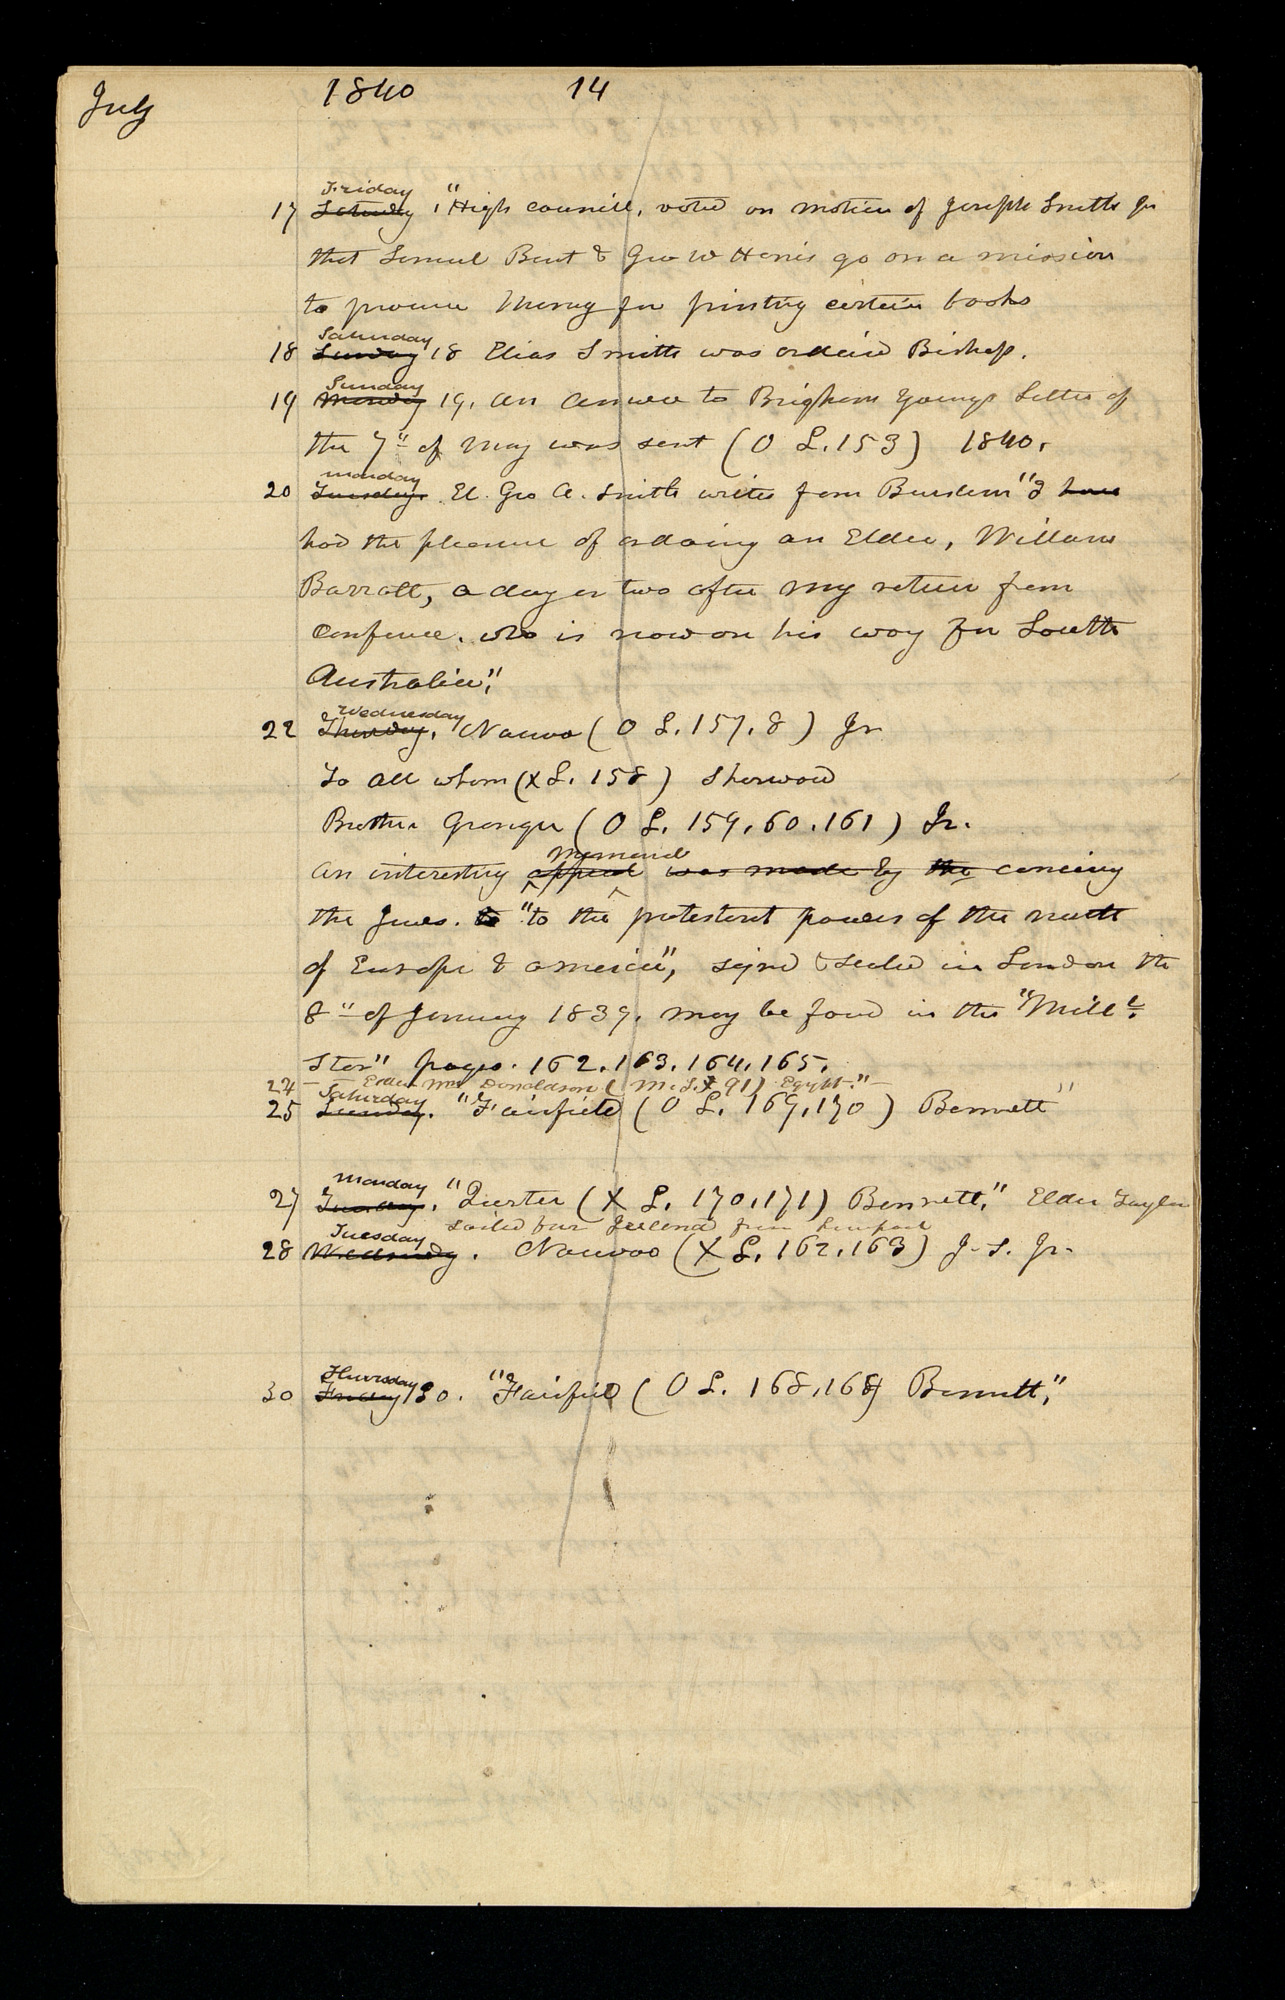 July 1840 14
Friday
17 Saturday, "High council, voted on motion of Joseph Smith Jr
that Samuel Bent & Geo W Harris go on a mission
to procure Money for printing certain books
Saturday
18 Sunday 18 Elias Smith was ordaind Bishop.
Sunday
19 Monday 19, an answer to Brigham Youngs Letter of
the 7" of May was sent (O L. 153) 1840.
monday
20 Tuesday. El. Geo A. Smith writes from Burslem "I have
had the pleasure of ordaing an Elder, William
Barratt, a day or two after my return from
Conference. who is now on his way for South
Australia",
Wednesday
22 Thursday. "Nauvoo (O L. 157, 8) Jr
To all whom (X L. 158) Sherwood
Brother Granger (O L. 159, 60, 161) Jr.
Memorial
An interesting appeal was made by the concering
the Jews. to "to the protestent powers of the north
of Europe & america", signd & sealed in London the
8" of January 1839. may be found in the "Mill.
Star" pages. 162. 163. 164. 165.
24 — Elder Wm Donaldson ( M. S. 1 91) Egypt." —
Saturday
25 Sunday. "Fairfield (O L. 169, 170) Bennett"
Monday
27 Tuesday. "Quarter (X L. 170, 171) Bennett," Elder Taylor
sailed for Ireland from Liverpool
Tuesday
28 Wednesday. Nauvoo (X L. 162, 163) J. S. Jr.
Thursday
30 Friday 30. "Fairfield (O L. 168, 168) Bennett,"